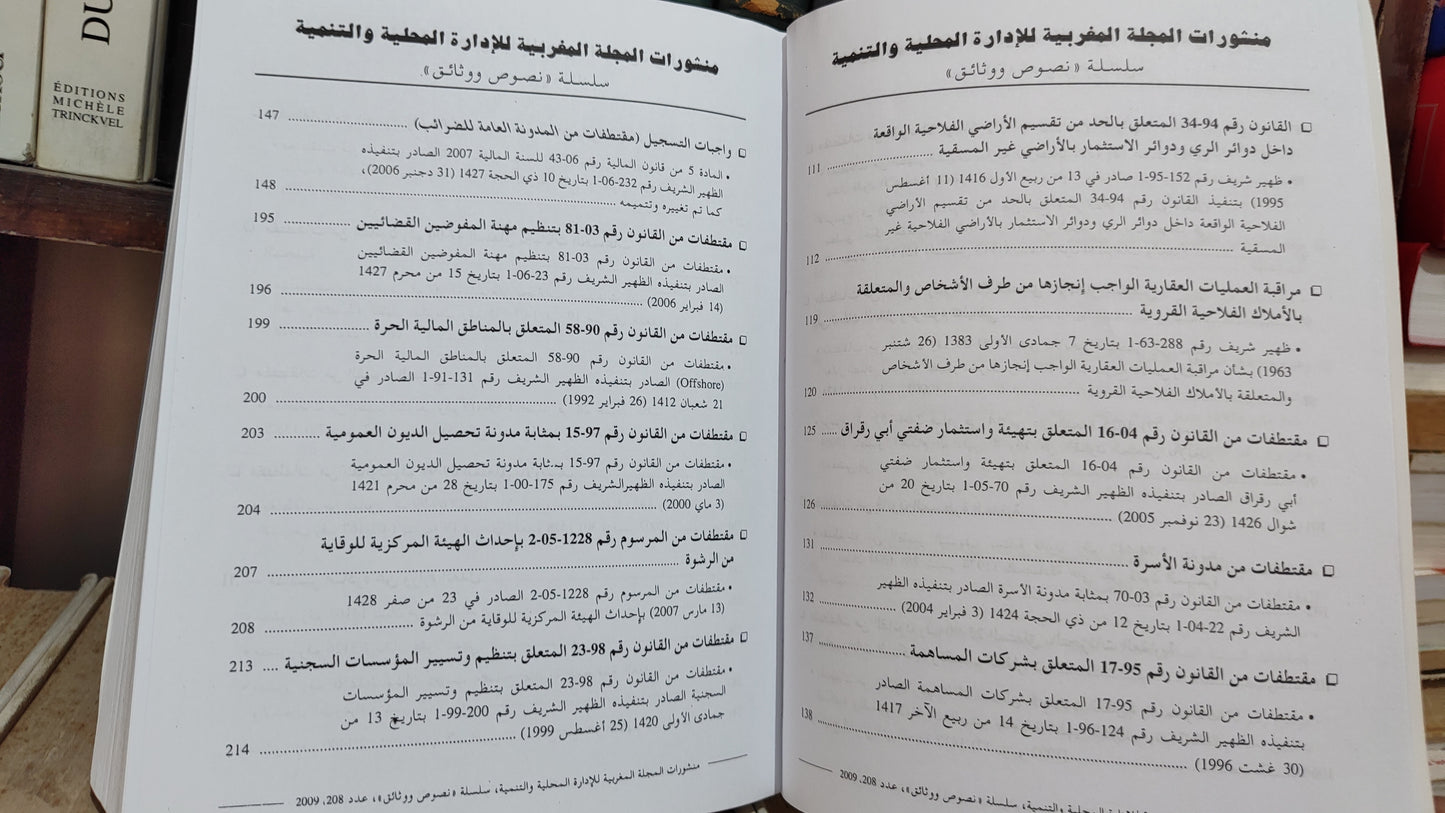 منشورات المجلة المغربية للإدارة المحلية والتنمية
سلسلة «نصوص ووثائق»
❑ القانون رقم 94-34 المتعلق بالحد من تقسيم الأراضي الفلاحية الواقعة
داخل دوائر الري ودوائر الاستثمار بالأراضي غير المسقية ........ 111
• ظهير شريف رقم 152-95-1 صادر في 13 من ربيع الأول 1416 (11 أغسطس
1995) بتنفيذ القانون رقم 94-34 المتعلق بالحد من تقسيم الأراضي
الفلاحية الواقعة داخل دوائر الري ودوائر الاستثمار بالأراضي الفلاحية غير
المسقية ........ 112
❑ مراقبة العمليات العقارية الواجب إنجازها من طرف الأشخاص والمتعلقة
بالأملاك الفلاحية القروية ........ 119
• ظهير شريف رقم 288-63-1 بتاريخ 7 جمادى الأولى 1383 (26 شتنبر
1963) بشأن مراقبة العمليات العقارية الواجب إنجازها من طرف الأشخاص
والمتعلقة بالأملاك الفلاحية القروية ........ 120
❑ مقتطفات من القانون رقم 04-16 المتعلق بتهيئة واستثمار ضفتي أبي رقراق ..... 125
• مقتطفات من القانون رقم 04-16 المتعلق بتهيئة واستثمار ضفتي
أبي رقراق الصادر بتنفيذه الظهير الشريف رقم 70-05-1 بتاريخ 20 من
شوال 1426 (23 نوفمبر 2005) ........ 126
❑ مقتطفات من مدونة الأسرة ........ 131
• مقتطفات من القانون رقم 03-70 بمثابة مدونة الأسرة الصادر بتنفيذه الظهير
الشريف رقم 22-04-1 بتاريخ 12 من ذي الحجة 1424 (3 فبراير 2004) ........ 132
❑ مقتطفات من القانون رقم 95-17 المتعلق بشركات المساهمة ........ 137
• مقتطفات من القانون رقم 95-17 المتعلق بشركات المساهمة الصادر
بتنفيذه الظهير الشريف رقم 124-96-1 بتاريخ 14 من ربيع الآخر 1417
(30 غشت 1996) ........ 138
للإدارة المحلية والتنمية، سلسلة «نصوص ووثائق»، عدد 208، 2009
منشورات المجلة المغربية للإدارة المحلية والتنمية
سلسلة «نصوص ووثائق».
❑ واجبات التسجيل (مقتطفات من المدونة العامة للضرائب) ........ 147
• المادة 5 من قانون المالية رقم 06-43 للسنة المالية 2007 الصادر بتنفيذه
الظهير الشريف رقم 232-06-1 بتاريخ 10 ذي الحجة 1427 (31 دجنبر 2006)،
كما تم تغييره وتتميمه ........ 148
❑ مقتطفات من القانون رقم 03-81 بتنظيم مهنة المفوضين القضائيين ........ 195
• مقتطفات من القانون رقم 03-81 بتنظيم مهنة المفوضين القضائيين
الصادر بتنفيذه الظهير الشريف رقم 23-06-1 بتاريخ 15 من محرم 1427
(14 فبراير 2006) ........ 196
❑ مقتطفات من القانون رقم 90-58 المتعلق بالمناطق المالية الحرة ........ 199
• مقتطفات من القانون رقم 90-58 المتعلق بالمناطق المالية الحرة
(Offshore) الصادر بتنفيذه الظهير الشريف رقم 131-91-1 الصادر في
21 شعبان 1412 (26 فبراير 1992) ........ 200
❑ مقتطفات من القانون رقم 97-15 بمثابة مدونة تحصيل الديون العمومية ........ 203
• مقتطفات من القانون رقم 97-15 بمثابة مدونة تحصيل الديون العمومية
الصادر بتنفيذه الظهيرالشريف رقم 175-00-1 بتاريخ 28 من محرم 1421
(3 ماي 2000) ........ 204
❑ مقتطفات من المرسوم رقم 1228-05-2 بإحداث الهيئة المركزية للوقاية
من الرشوة ........ 207
• مقتطفات من المرسوم رقم 1228-05-2 الصادر في 23 من صفر 1428
(13 مارس 2007) بإحداث الهيئة المركزية للوقاية من الرشوة ........ 208
❑ مقتطفات من القانون رقم 98-23 المتعلق بتنظيم وتسيير المؤسسات السجنية .... 213
• مقتطفات من القانون رقم 98-23 المتعلق بتنظيم وتسيير المؤسسات
السجنية الصادر بتنفيذه الظهير الشريف رقم 200-99-1 بتاريخ 13 من
جمادى الأولى 1420 (25 أغسطس 1999) ........ 214
منشورات المجلة المغربية للإدارة المحلية والتنمية، سلسلة «نصوص ووثائق»، عدد 208، 2009
DU
ÉDITIONS
MICHÈLE
TRINCKVEL